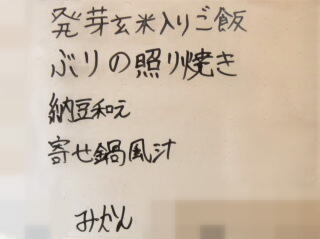 発芽玄米入りご飯
ぶりの照り焼き
納豆和え
寄せ鍋風汁
みかん